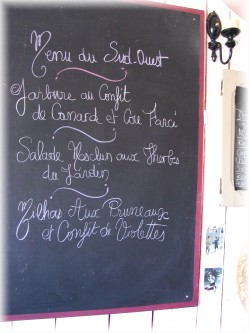 Menu du Sud-Ouest
Garbure au Confit
de Canard et Cou Farci
Salade Mesclun aux Herbes
du Jardin
Milhas Aux Pruneaux
et Confit de Violettes